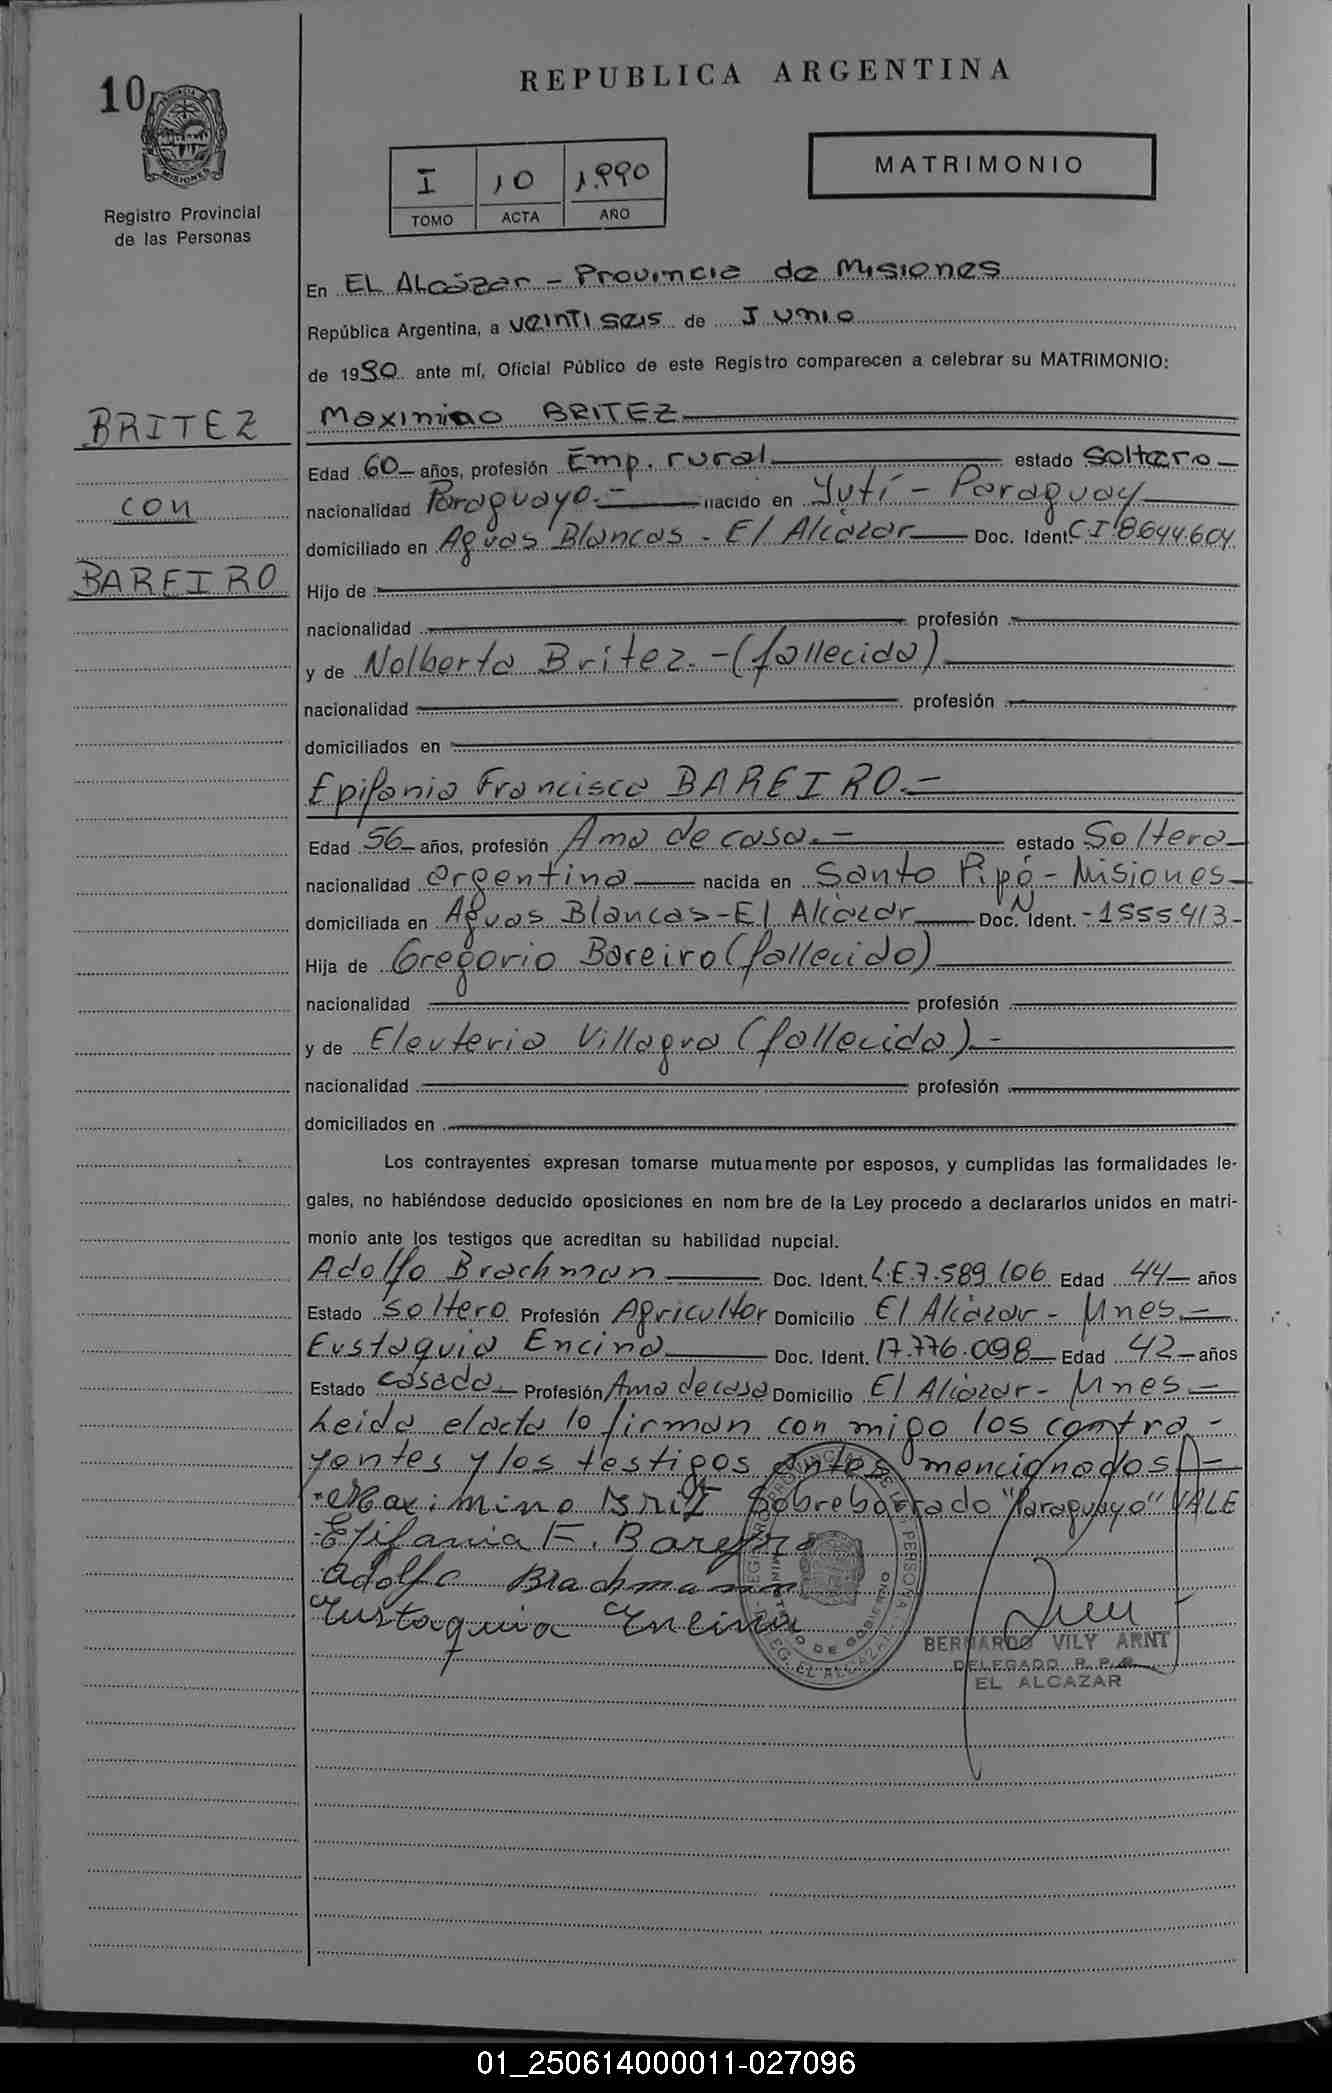 10
REPUBLICA ARGENTINA
Registro Provincial
de las Personas
I 10 1.990
TOMO ACTA AÑO
MATRIMONIO
En EL ALcázar - Provincia de Misiones
República Argentina, a veinti seis de Junio
de 1990 ante mí, Oficial Público de este Registro comparecen a celebrar su MATRIMONIO:
BRITEZ
con
BAREIRO
Maximino BRITEZ
Edad 60 años, profesión Emp. rural estado Soltero
nacionalidad Paraguayo.- nacido en Yutí - Paraguay
domiciliado en Aguas Blancas - El Alcázar Doc. Ident. C I 8.644.604
Hijo de
nacionalidad profesión
y de Nolberta Britez. - (fallecida)
nacionalidad profesión
domiciliados en
Epifania Francisca BAREIRO.-
Edad 56 años, profesión Ama de casa.- estado Soltera
nacionalidad argentina nacida en Santo Pipó - Misiones
domiciliada en Aguas Blancas - El Alcázar Doc. N Ident. - 1555413 -
Hija de Gregorio Bareiro (fallecido)
nacionalidad profesión
y de Eleuteria Villagra (fallecida).-
nacionalidad profesión
domiciliados en
Los contrayentes expresan tomarse mutuamente por esposos, y cumplidas las formalidades le-
gales, no habiéndose deducido oposiciones en nom bre de la Ley procedo a declararlos unidos en matri-
monio ante los testigos que acreditan su habilidad nupcial.
Adolfo Brachman Doc. Ident. L.E.7.589.106 Edad 44 años
Estado Soltero Profesión Agricultor Domicilio El Alcázar - Mnes.-
Eustaquia Encina Doc. Ident. 17.776.098 Edad 42 años
Estado casada Profesión Ama de casa Domicilio El Alcázar - Mnes -
Leida el acta lo firman con migo los contra -
yentes y los testigos antes mencionados -
Maximino Brit Sobreborrado "Paraguayo" VALE
Epifania F. Bareiro
Adolfo Brachmann
Eustaquia Encina
BERNARDO VILY ARNT
DELEGADO R. P.
EL ALCAZAR
01_250614000011-027096